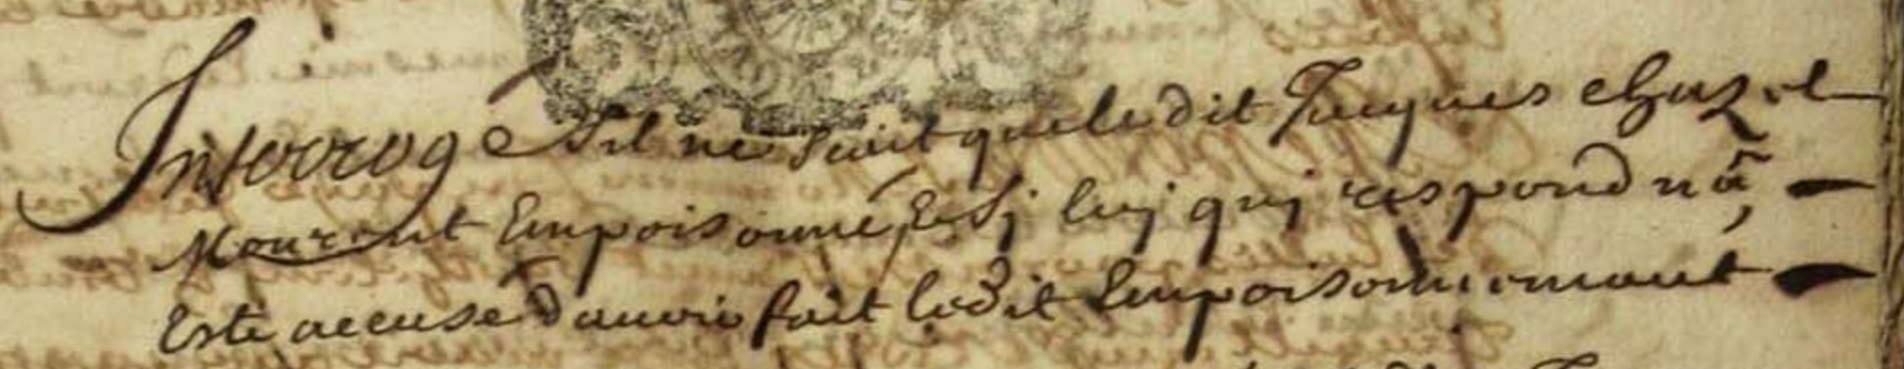 Interrogé s'il ne scait que ledit Jacques chazel
Mourut Empoisonné, Et sj luj quj respond nã
Este accusé d'auoir fait ledit Empoisonnemant